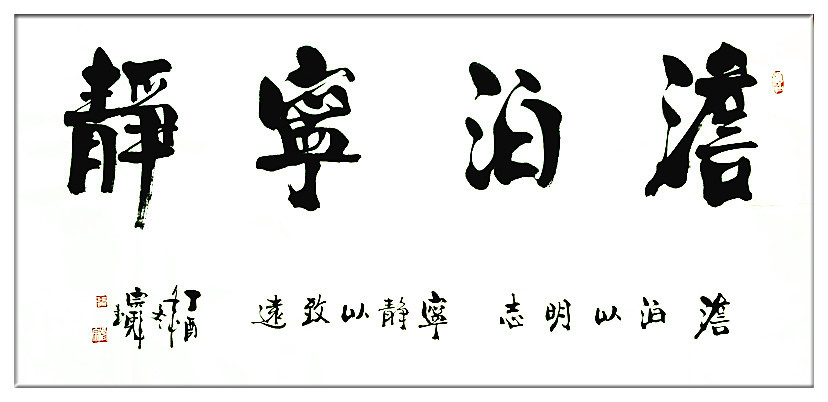 澹泊寧靜
澹泊以明志 寧静以致遠
丁酉